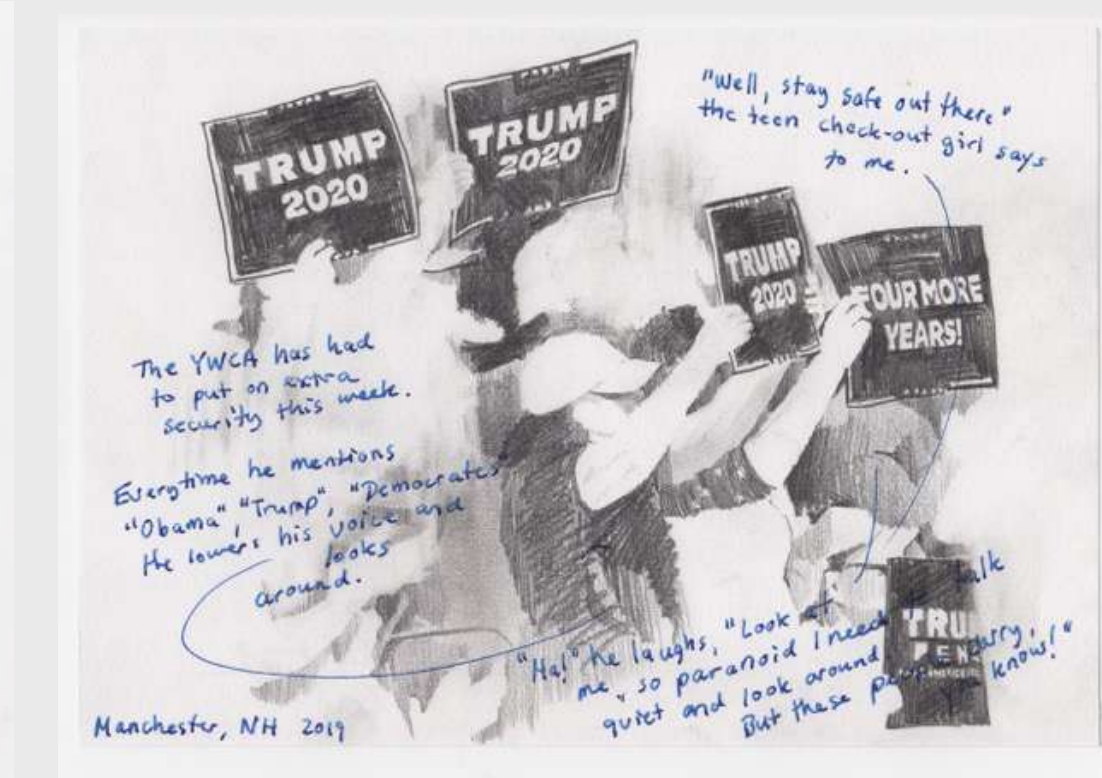 TRUMP
2020
TRUMP
2020
"Well, stay safe out there"
the teen check-out girl says
to me.
TRUMP
2020
FOUR MORE
YEARS!
The YWCA has had
to put on extra
security this week.
Everytime he mentions
"Obama", "Trump", "Democrates"
He lowers his voice and
looks
around.
"Ha!" he laughs, "Look at
me, so paranoid I need to talk
quiet and look around
But these people carry,
you know!"
TRU
PEN
Manchester, NH 2019